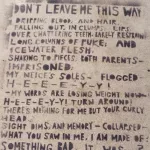 DON'T LEAVE ME THIS WAY
DRIPPING BLOOD, AND HAIR
FALLING OUT, IN CLUMPS. LIPS
OVER CHATTERING TEETH. BARELY
LONG COLUMNS OF PUKE, AND
ICEWATER FLESH.
SHAKING TO PIECES. BOTH PARENTS
IMPRISONED.
MY NIECES SOLES - FLOGGED
H-E-E-E-Y-Y!
MY WORDS ARE LOSING WEIGHT NOW
H-E-E-E-Y-Y! TURN AROUND!
THERE'S NOTHING FOR ME BUT YOUR CURLY
HEAD.
SIGHT DIMS, AND MEMORY - COLLAPSED.
WHAT YOU SAW IN ME. I AM MADE OF
SOMETHING BAD. IT WAS